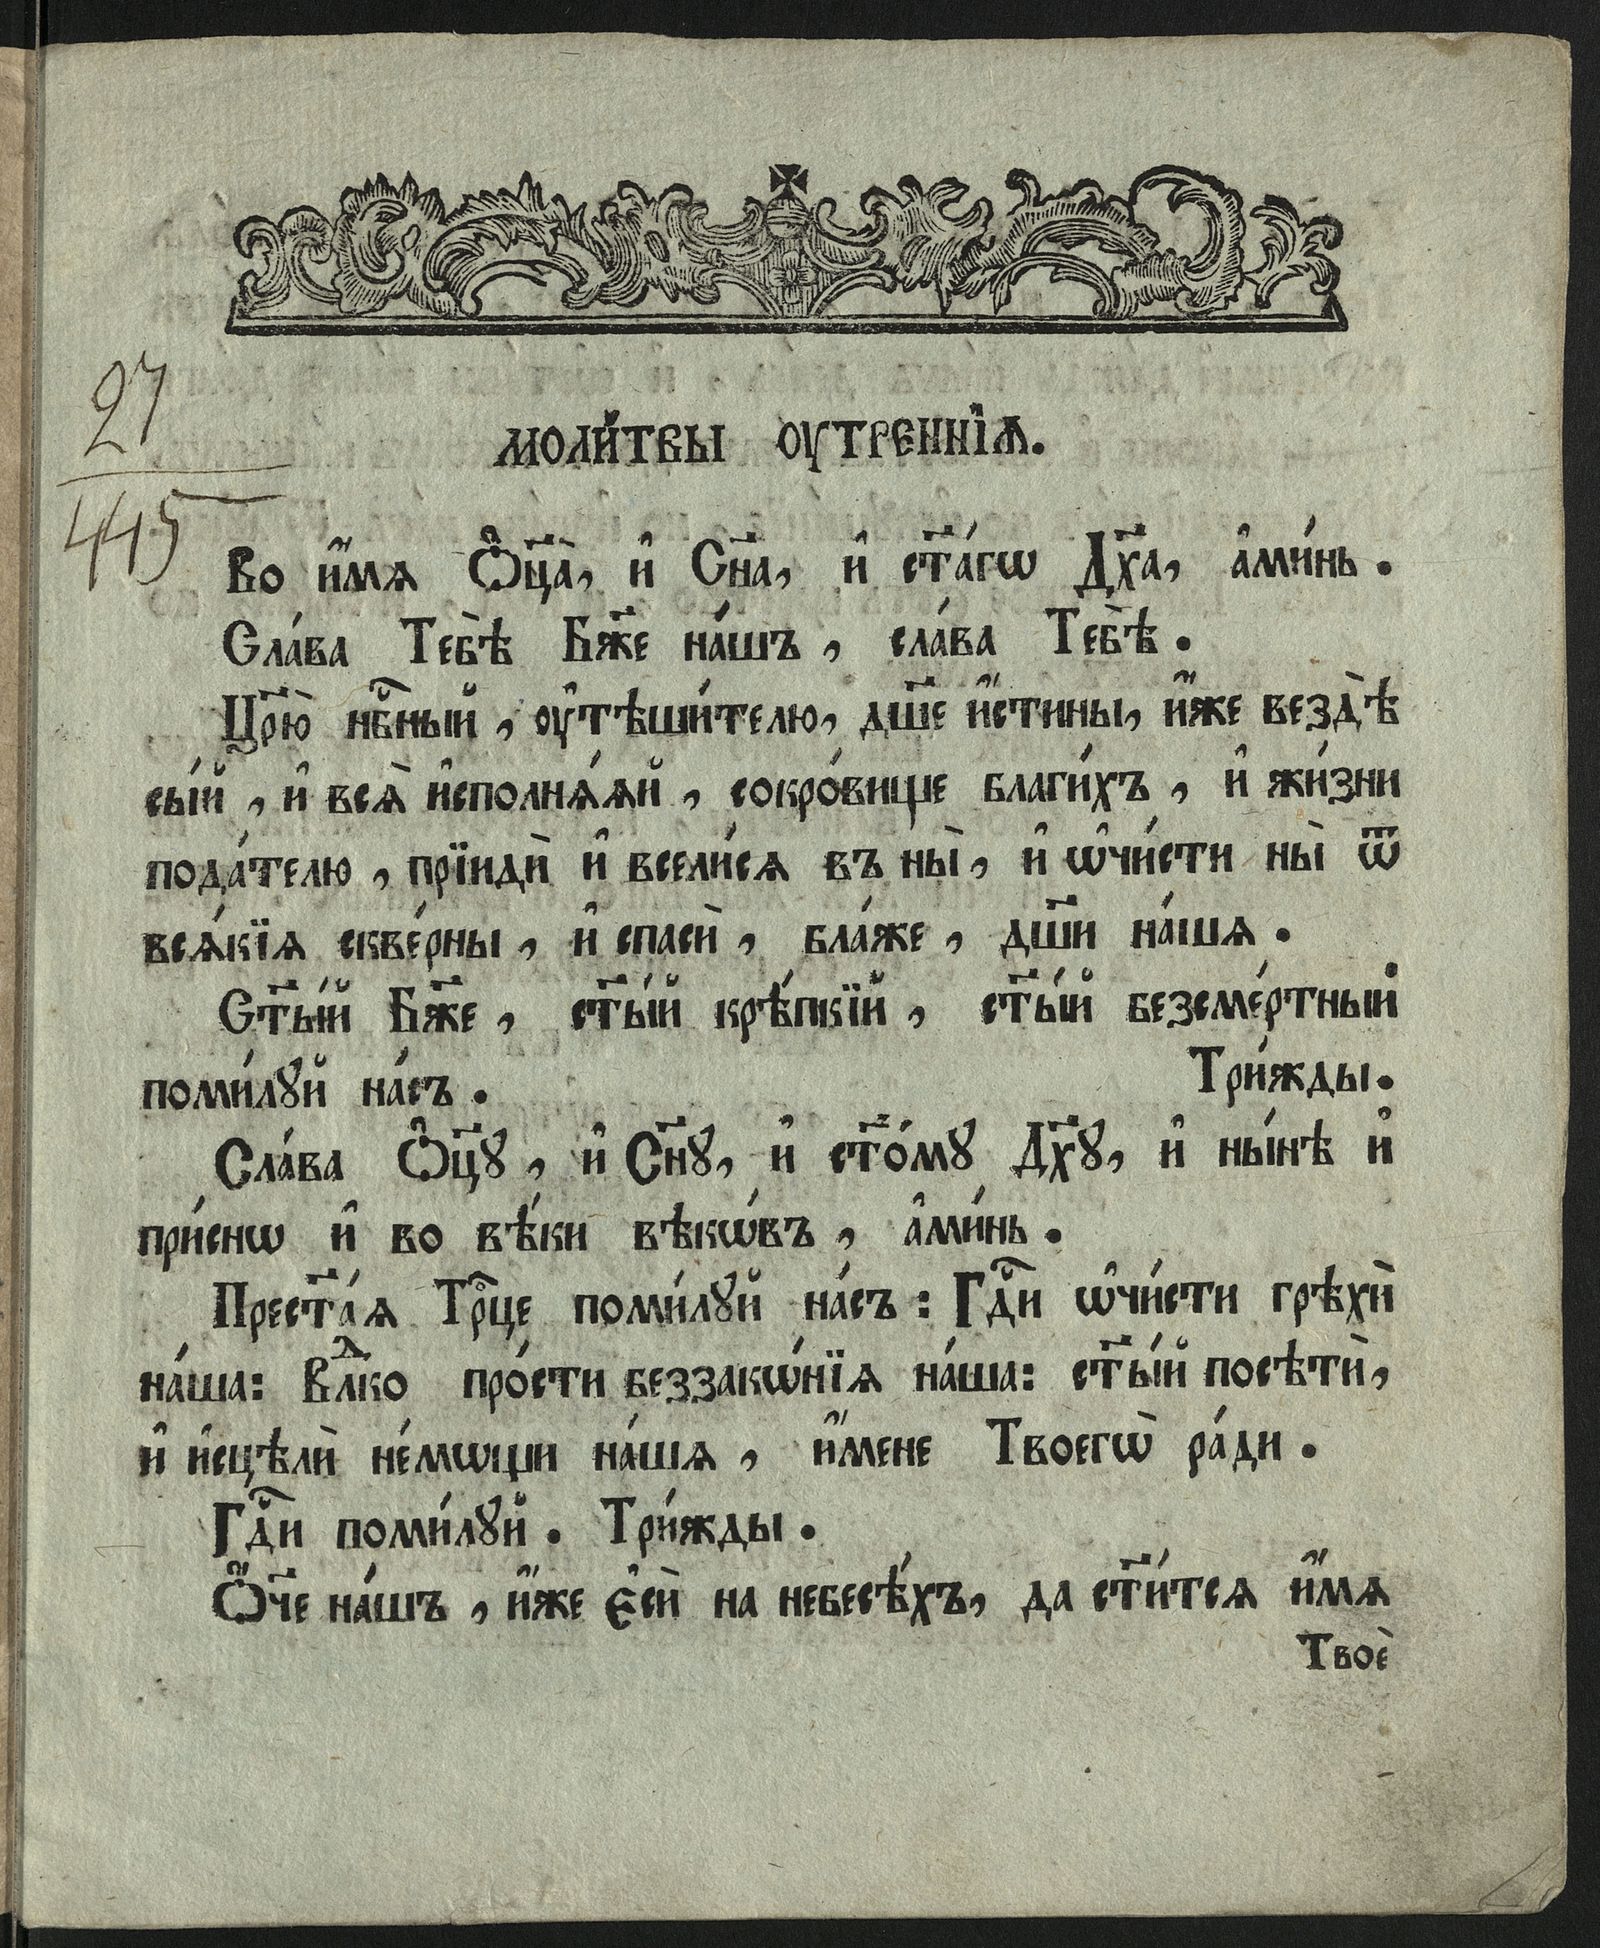 27
445
МОЛИ́ТВЫ ОУТРЕННІѦ.
Во и҆́мѧ Ѻ҆ц҃а̀, и҆ Сн҃а, и҆ ст҃а́гѡ Дх҃а, а҆ми́нь.
Сла́ва Тебѣ̀ Бж҃е на́шъ, сла́ва Тебѣ̀.
Цр҃ю̀ нбⷭ҇ный, оу҆тѣши́телю, дш҃е и҆́стины, и҆́же вездѣ̀
сы́й, и҆ всѧ̀ и҆сполнѧ́ѧй, сокро́вище благи́хъ, и҆ жи́зни
пода́телю, прїидѝ и҆ всели́сѧ въ ны̀, и҆ ѡ҆чи́сти ны̀ ѿ
всѧ́кїѧ скве́рны, и҆ спасѝ, бла́же, дш҃и на́шѧ.
Ст҃ы́й Бж҃е, ст҃ы́й крѣ́пкїй, ст҃ы́й безсме́ртный
поми́лꙋй на́съ. Три́жды.
Сла́ва Ѻ҆ц҃ꙋ, и҆ Сн҃ꙋ, и҆ ст҃о́мꙋ Дх҃ꙋ, и҆ ны́нѣ и҆
при́снѡ и҆ во вѣ́ки вѣкѡ́въ, а҆ми́нь.
Прест҃а́ѧ Трⷪ҇це поми́лꙋй на́съ: Гдⷭ҇и ѡ҆чи́сти грѣхѝ
на́ша: Влⷣко про́сти беззакѡ́нїѧ на́ша: ст҃ы́й посѣтѝ,
и҆ и҆сцѣлѝ не́мѡщи на́шѧ, и҆́мене Твоегѡ̀ ра́ди.
Гдⷭ҇и поми́лꙋй. Три́жды.
Ѻ҆́ч҃е на́шъ, и҆́же є҆сѝ на небесѣ́хъ, да ст҃и́тсѧ и҆́мѧ
Твоѐ